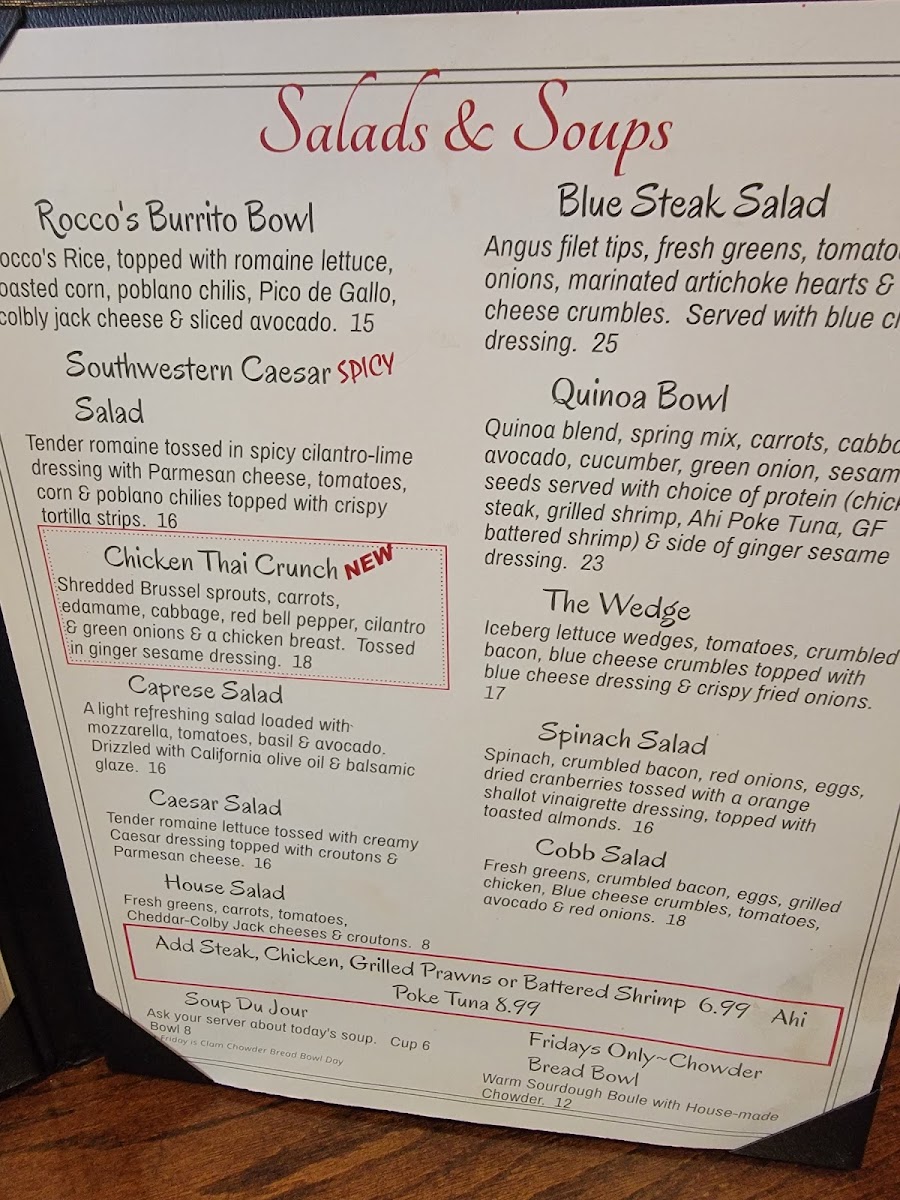 Salads & Soups
Rocco's Burrito Bowl
Rice, topped with romaine lettuce,
corn, poblano chilis, Pico de Gallo,
colbly jack cheese & sliced avocado. 15
Southwestern Caesar SPICY
Salad
Tender romaine tossed in spicy cilantro-lime
dressing with Parmesan cheese, tomatoes,
corn & poblano chilies topped with crispy
tortilla strips. 16
Chicken Thai Crunch NEW
Shredded Brussel sprouts, carrots,
edamame, cabbage, red bell pepper, cilantro
& green onions & a chicken breast. Tossed
in ginger sesame dressing. 18
Caprese Salad
A light refreshing salad loaded with
mozzarella, tomatoes, basil & avocado.
Drizzled with California olive oil & balsamic
glaze. 16
Caesar Salad
Tender romaine lettuce tossed with creamy
Caesar dressing topped with croutons &
Parmesan cheese. 16
House Salad
Fresh greens, carrots, tomatoes,
Cheddar-Colby Jack cheeses & croutons. 8
Blue Steak Salad
Angus filet tips, fresh greens,
onions, marinated artichoke hearts &
cheese crumbles. Served with blue
dressing. 25
Quinoa Bowl
Quinoa blend, spring mix, carrots,
avocado, cucumber, green onion,
seeds served with choice of protein
steak, grilled shrimp, Ahi Poke Tuna, GF
battered shrimp) & side of ginger sesame
dressing. 23
The Wedge
Iceberg lettuce wedges, tomatoes, crumbled
bacon, blue cheese crumbles topped with
blue cheese dressing & crispy fried onions.
17
Spinach Salad
Spinach, crumbled bacon, red onions, eggs,
dried cranberries tossed with a orange
shallot vinaigrette dressing, topped with
toasted almonds. 16
Cobb Salad
Fresh greens, crumbled bacon, eggs, grilled
chicken, Blue cheese crumbles, tomatoes,
avocado & red onions. 18
Add Steak, Chicken, Grilled Prawns or Battered Shrimp 6.99 Ahi
Poke Tuna 8.99
Soup Du Jour
Ask your server about today's soup. Cup 6
Bowl 8
Friday is Clam Chowder Bread Bowl Day
Fridays Only~Chowder
Bread Bowl
Warm Sourdough Boule with House-made
Chowder. 12